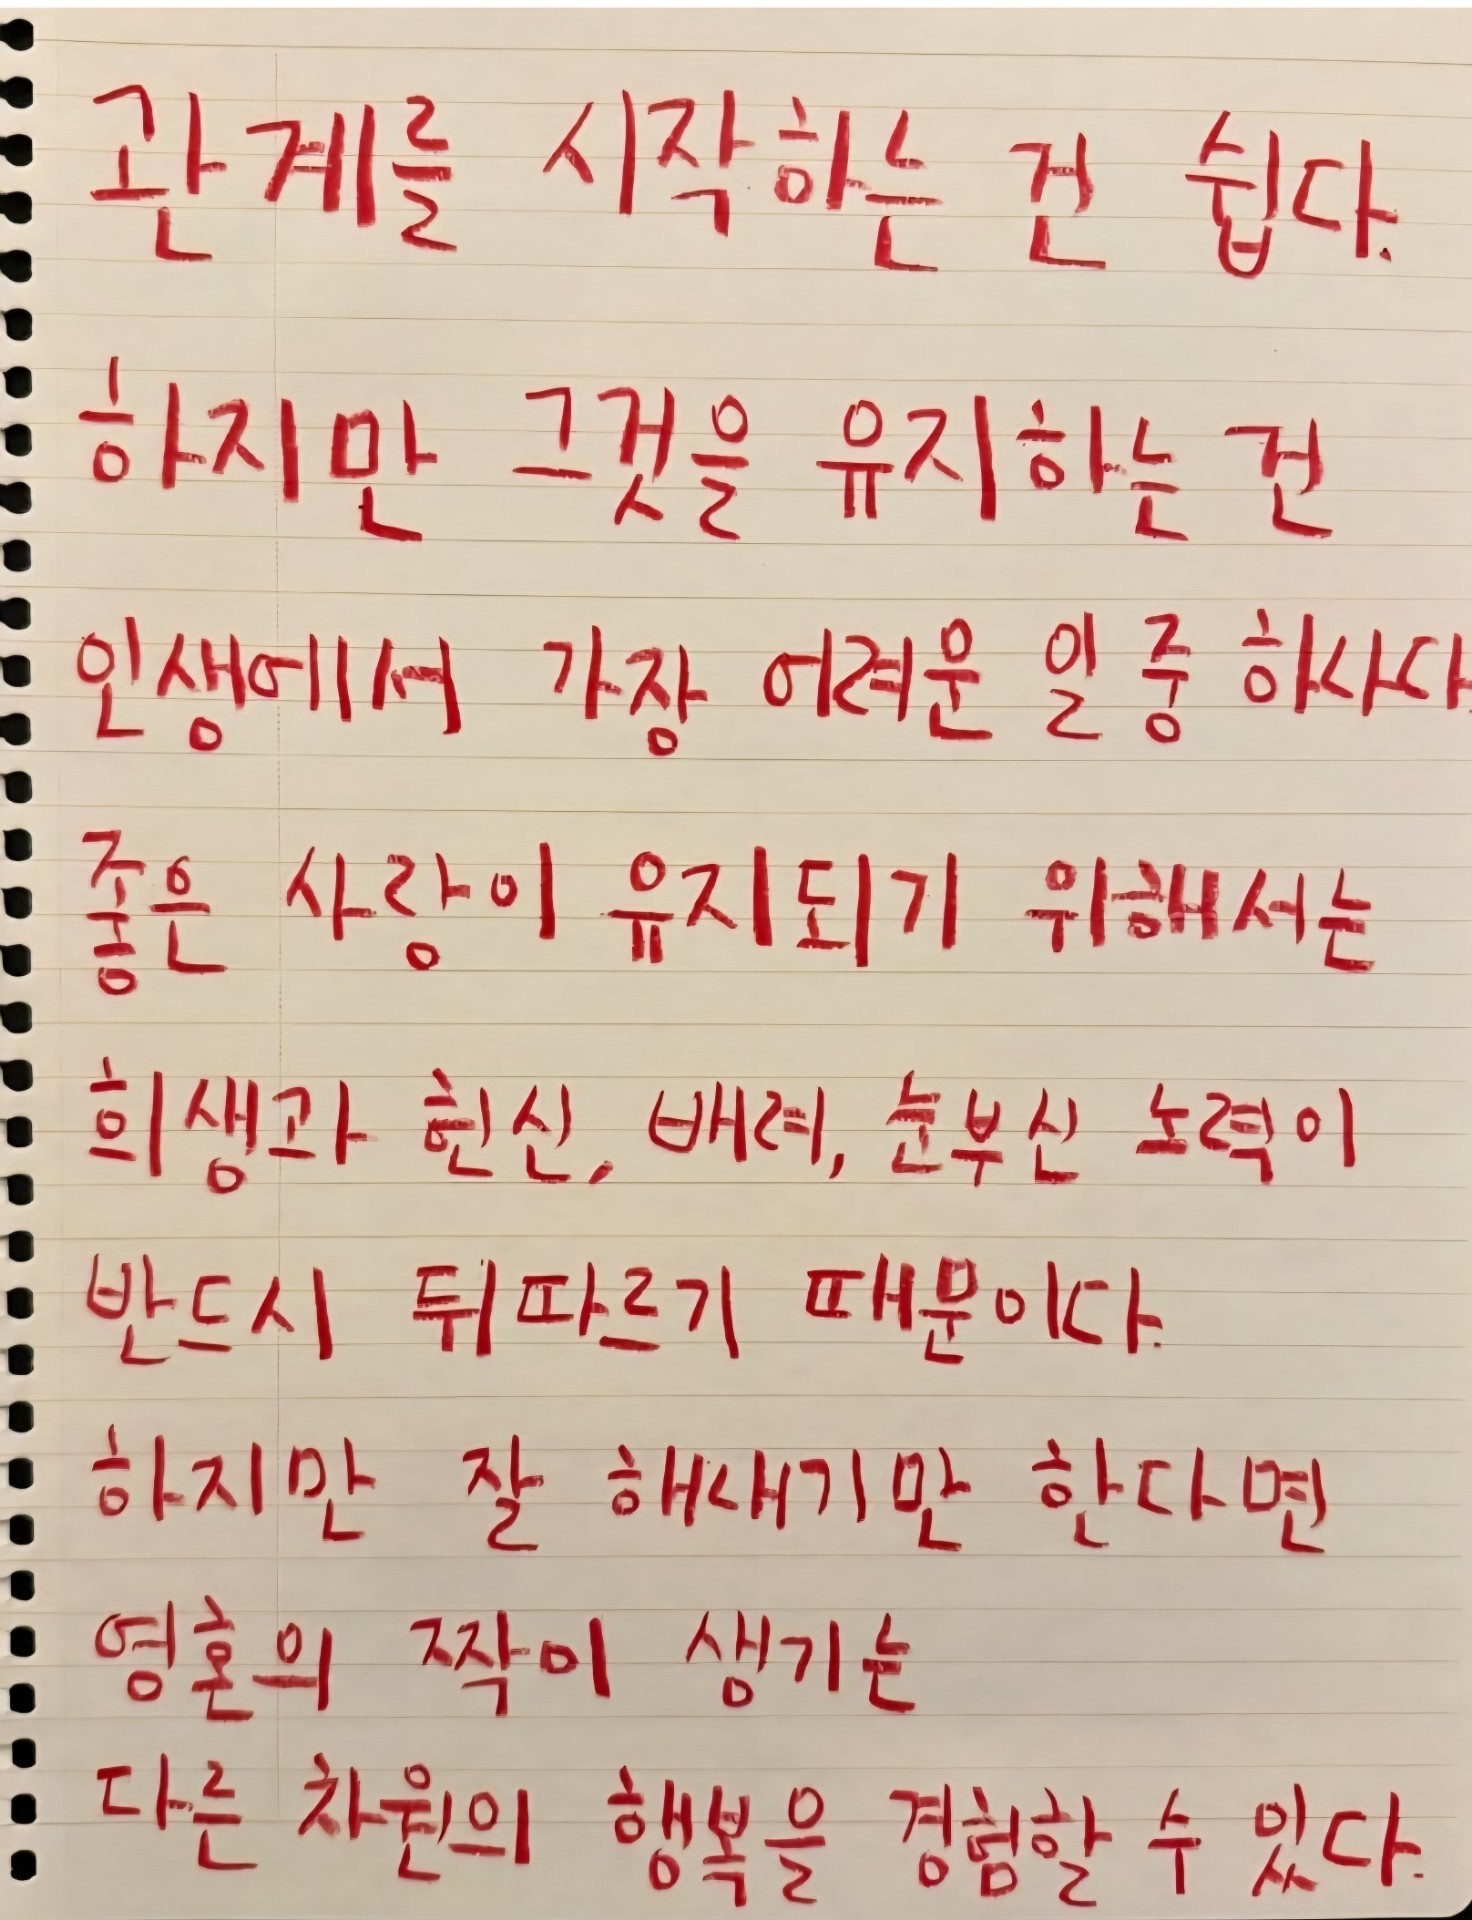 관계를 시작하는 건 쉽다.
하지만 그것을 유지하는 건
인생에서 가장 어려운 일 중 하나다.
좋은 사랑이 유지되기 위해서는
희생과 헌신, 배려, 눈부신 노력이
반드시 뒤따르기 때문이다.
하지만 잘 해내기만 한다면
영혼의 짝이 생기는
다른 차원의 행복을 경험할 수 있다.